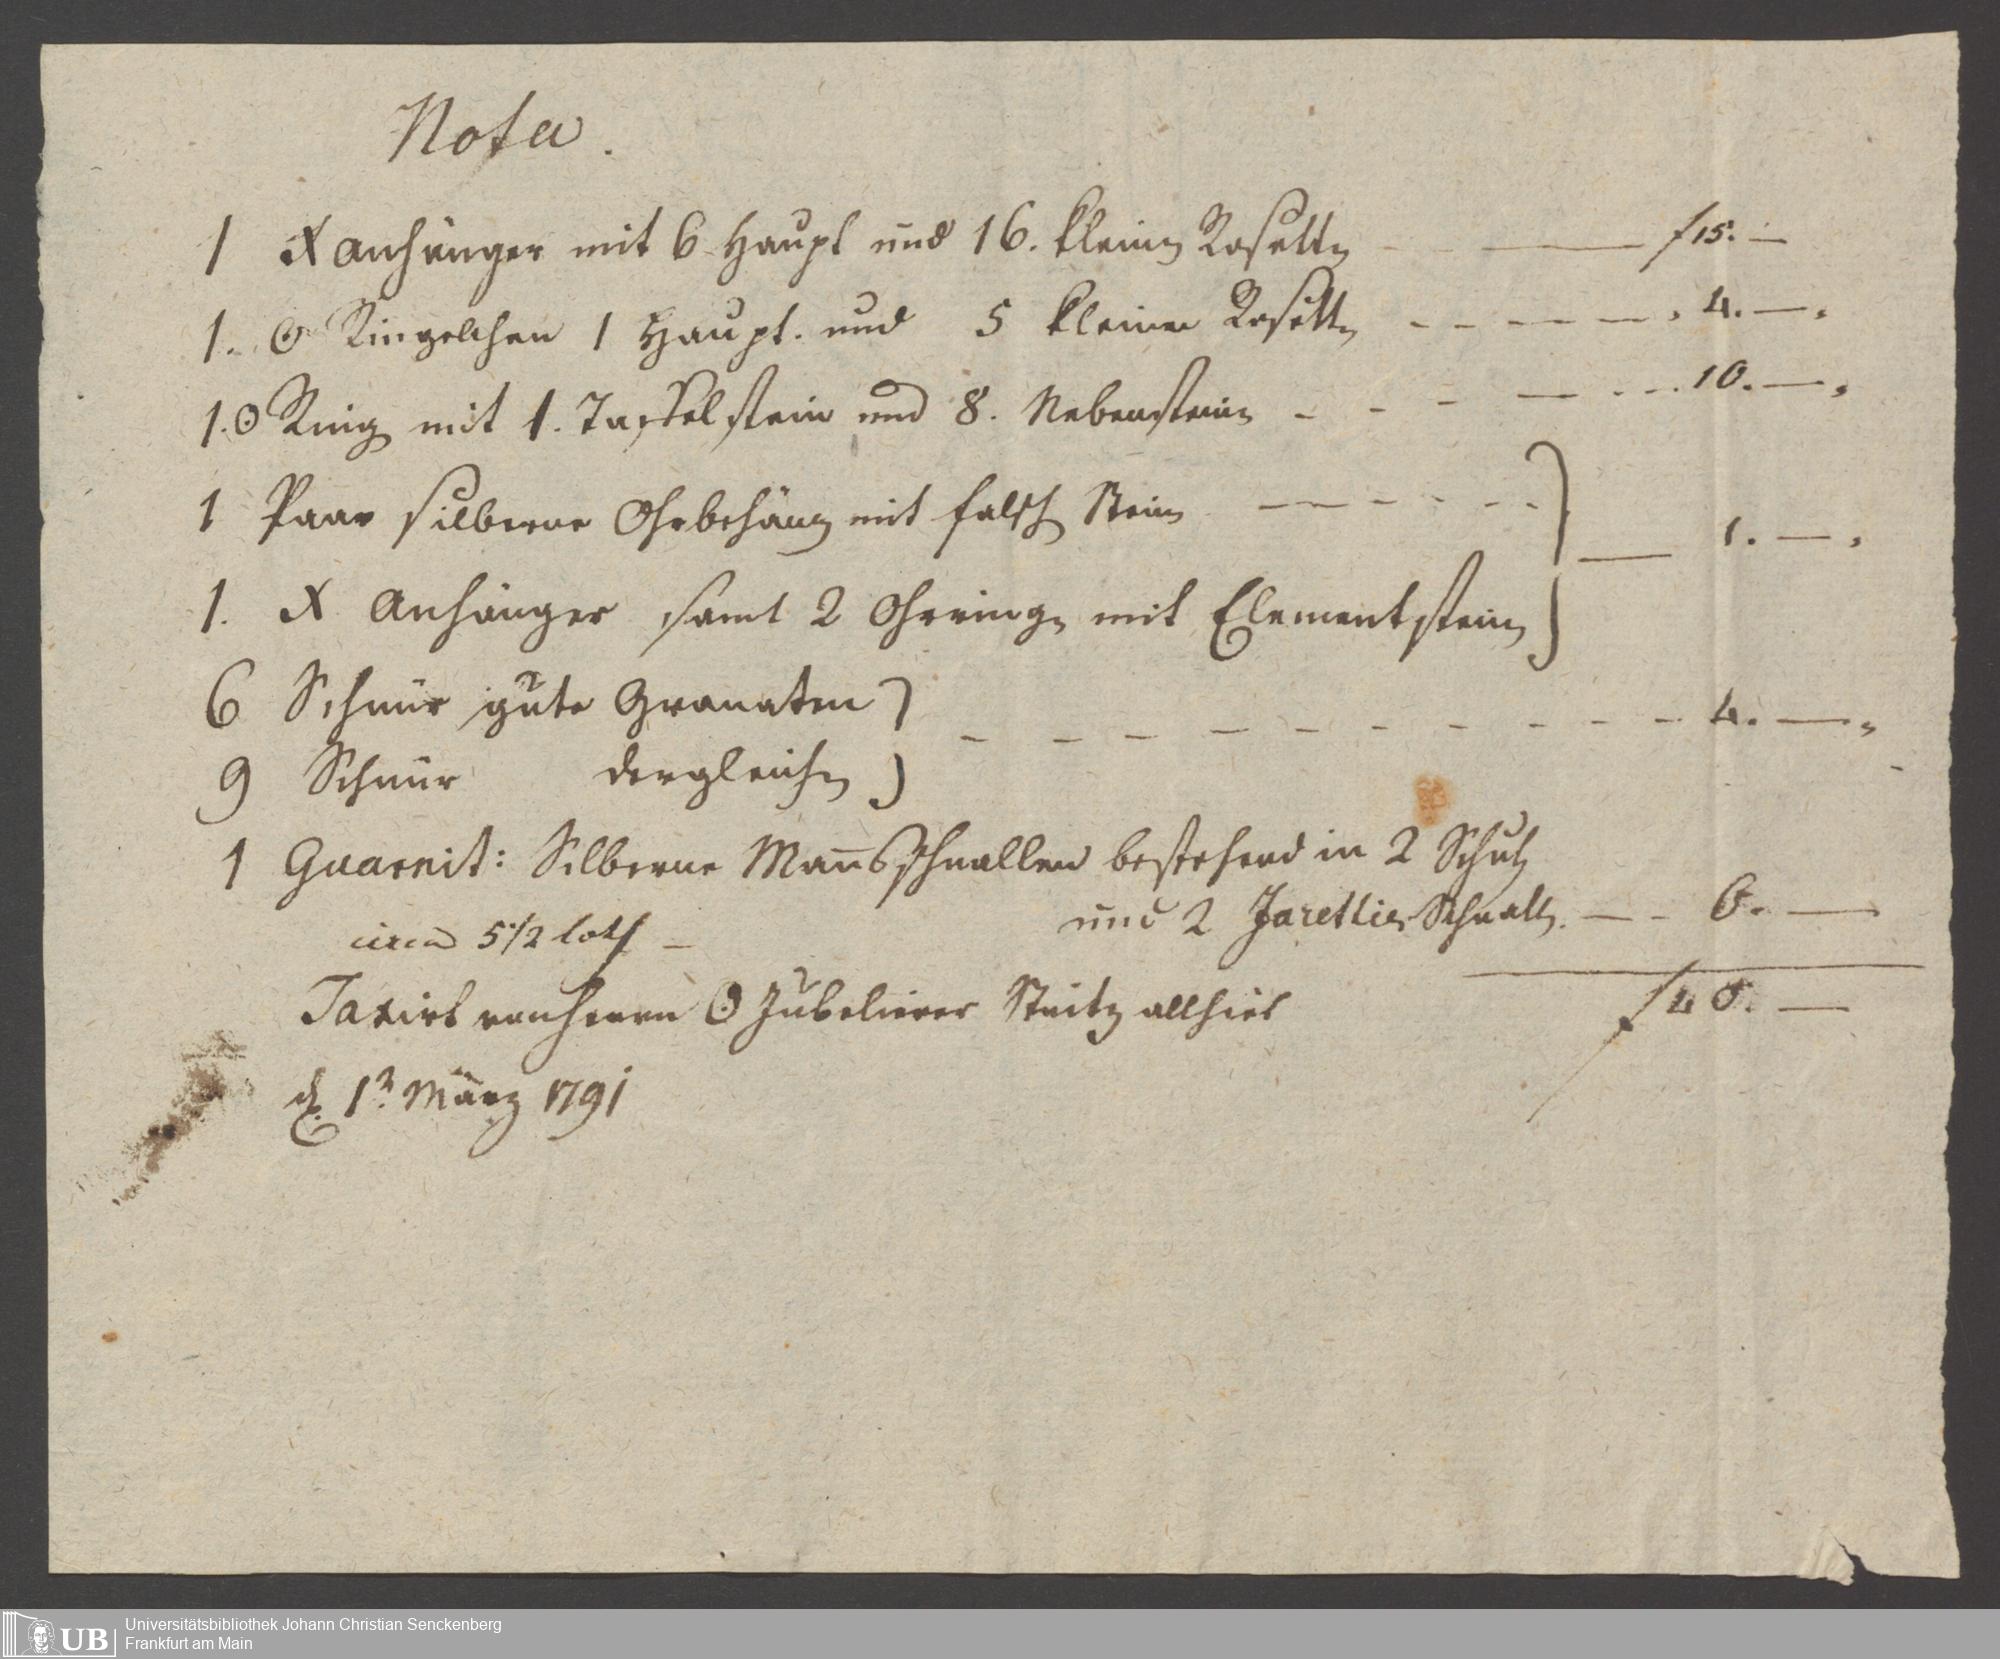 Nota.
1 X Anhänger mit 6 Haupt und 16. kleine Rosetten - — f 15. —
1. ☉ Ringelchen 1 Haupt. und 5 kleinen Rosetten - - - — - , 4. — ,
1. ☉ Ring mit 1. Taffelstein und 8. Nebensteine - - - — - - - 10. — ,
1 Paar silberne Ohrbehäng mit falsch Stein — - - - - -
1. X Anhänger samt 2 Ohrringe mit Elementstein } — 1. — ,
6 Schnür gute Granaten
9 Schnür dergleichen } - - - - - - - - - 4. — ,
1 Guarnit: Silberne Mannsschnallen bestehend in 2 Schuh
circa 5 1/2 loth — und 2 Jarettier Schnalle. — - 6. —
Taxirt von Herrn ☉ Jubelierer Steitz allhier f 40. —
d. 1t März 1791
UB Universitätsbibliothek Johann Christian Senckenberg
Frankfurt am Main